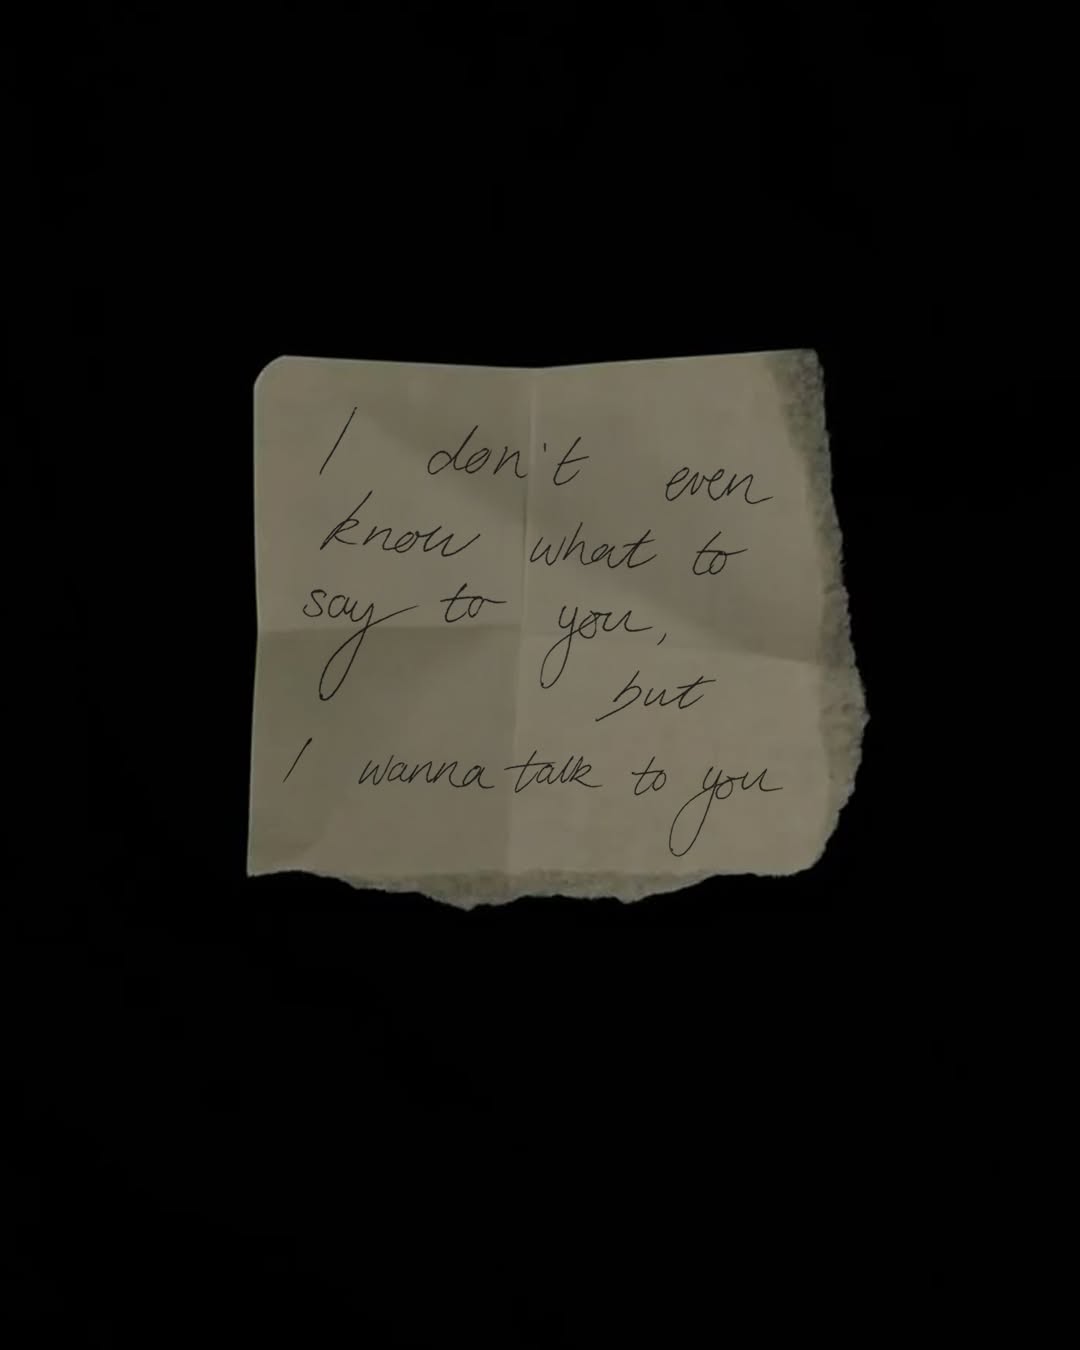 I don't even
know what to
say to you,
but
I wanna talk to you